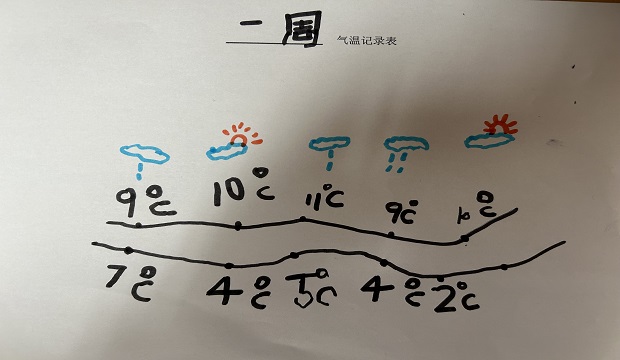 一周 气温记录表
9℃ 10℃ 11℃ 9℃ 10℃
7℃ 4℃ 5℃ 4℃ 2℃